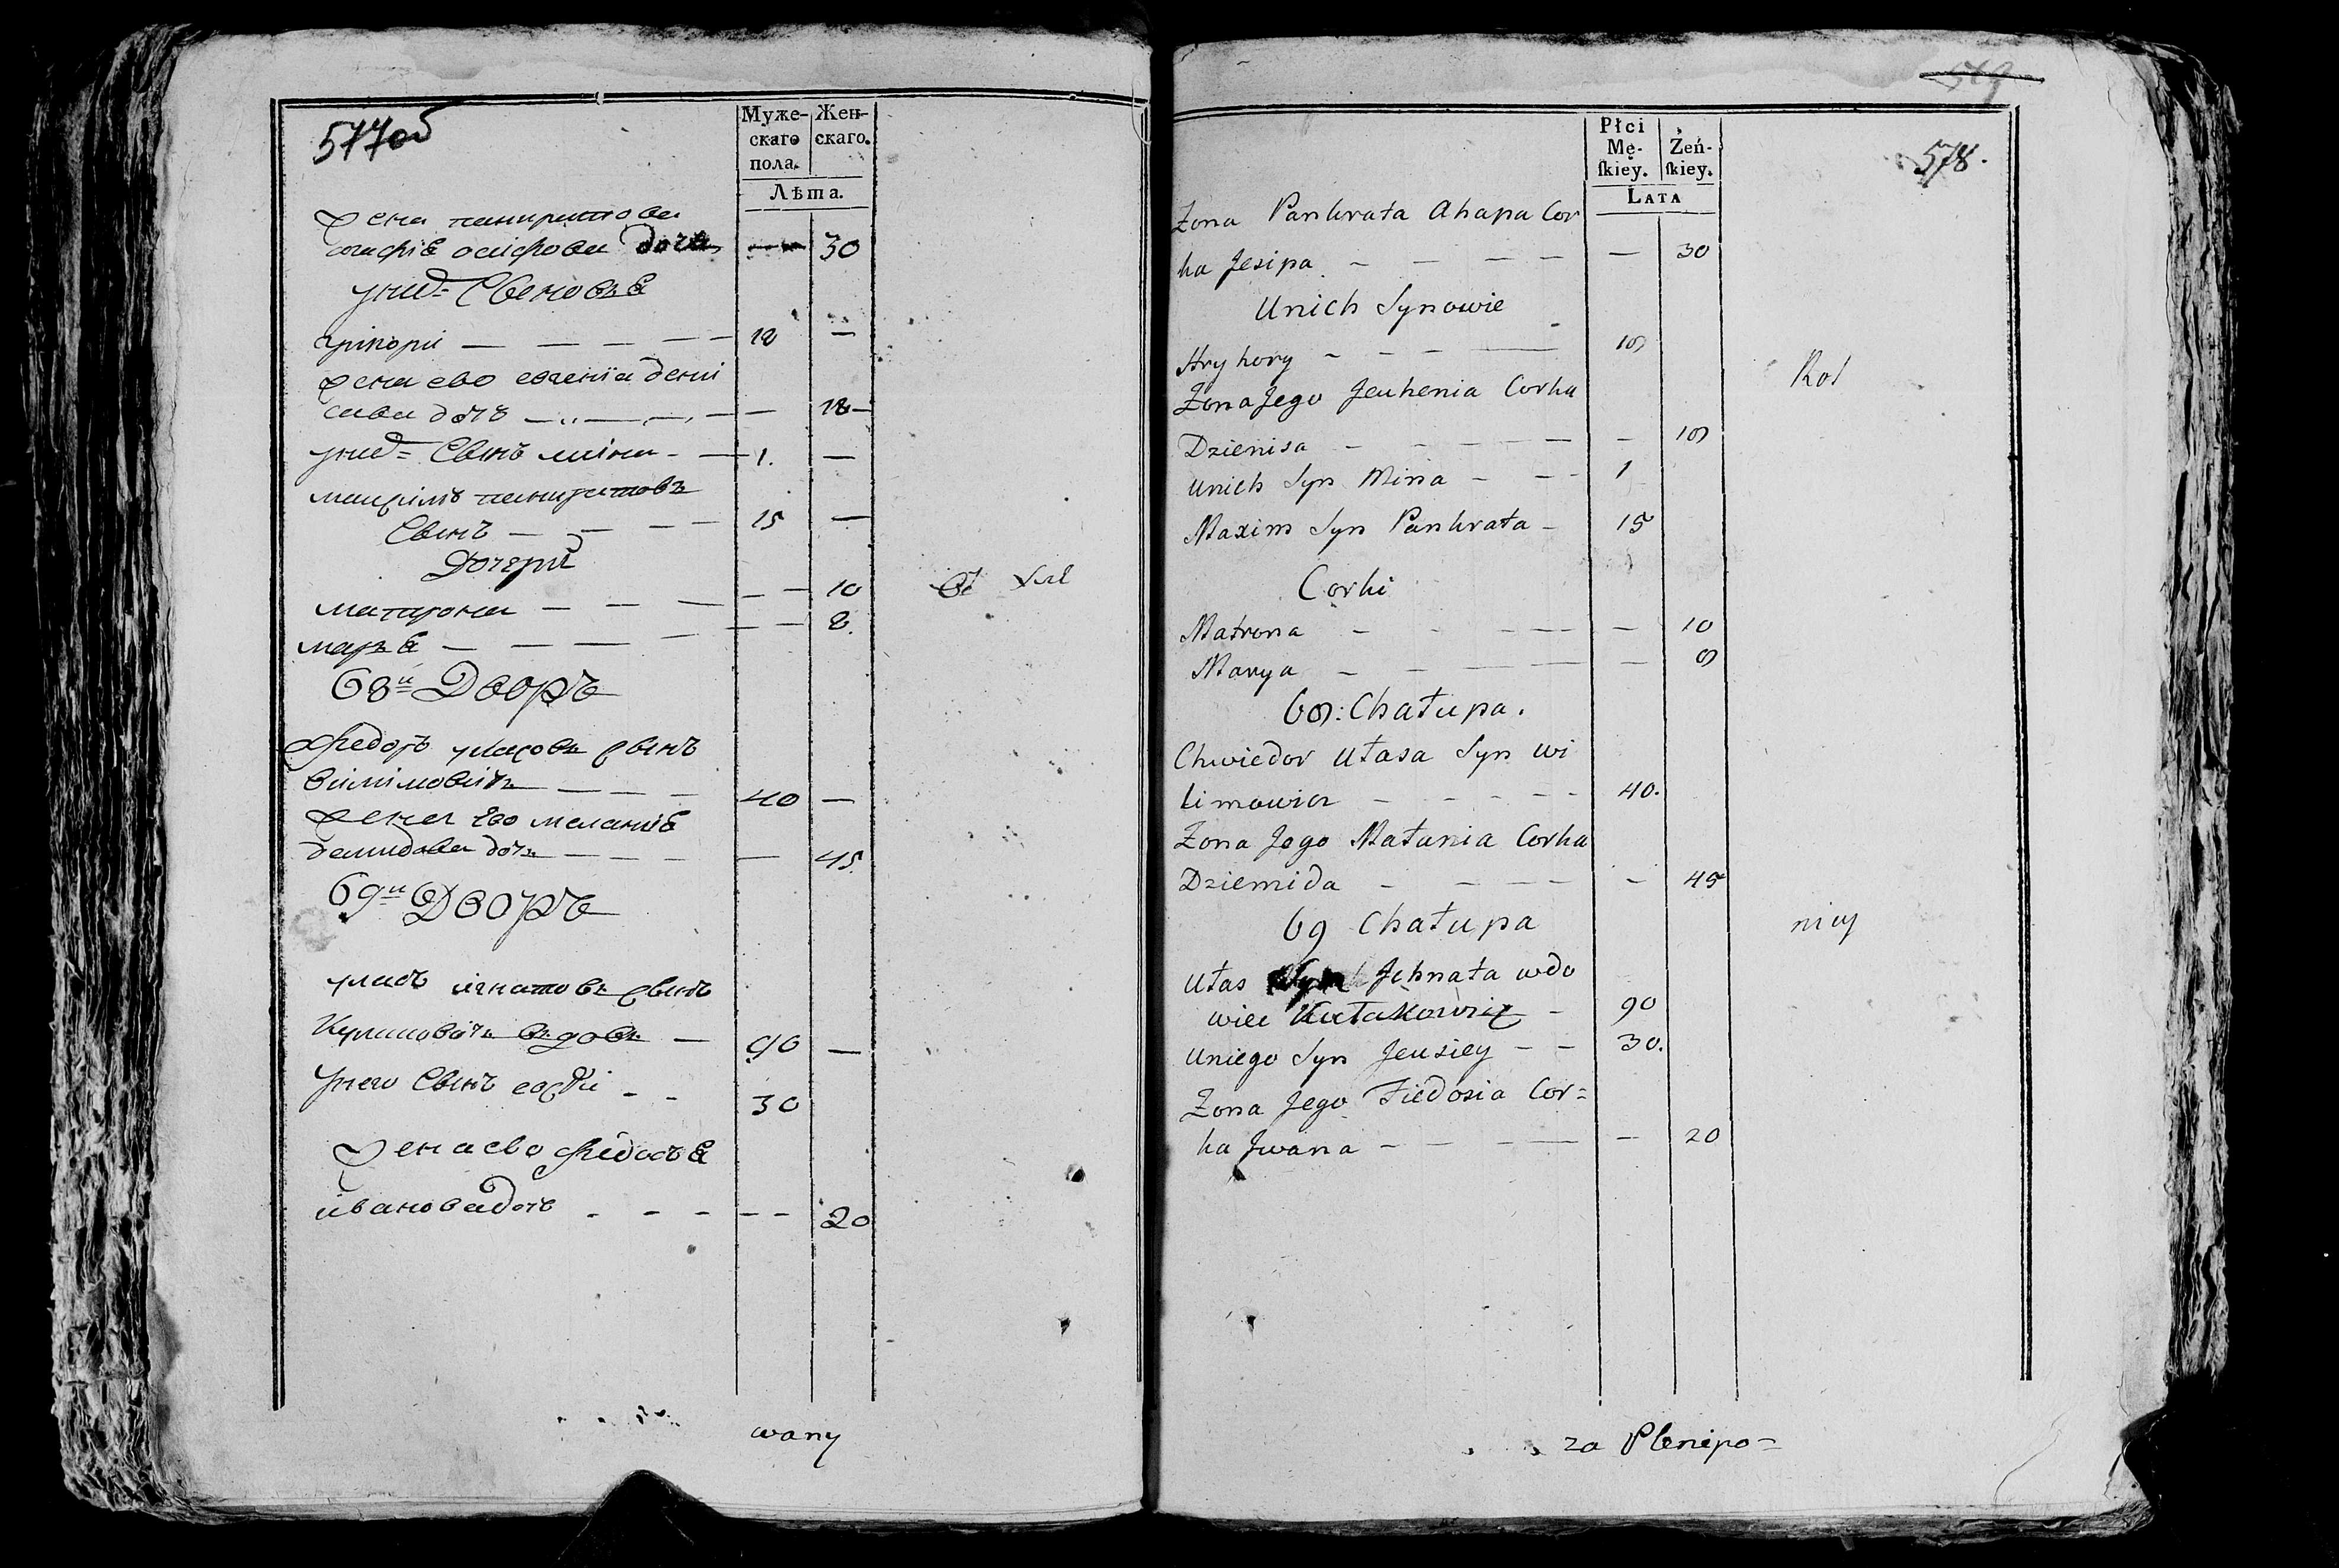 577об
Муже-
скаго
пола.
Жен-
скаго.
Лѣта.
жена панкратова
агафіѣ осіфова дочь — 30
унихъ Сыновья
григори — — — — — 18 —
жена ево евгенїа дени
сава дочь — — — — — 18 —
унихъ Сынъ міна - — 1. —
макѣімъ панкратовъ
Сынъ — — — — 15 —
Дочери
матрона — — — — — 10
марья — — — — — — 8.
68й Дворъ
Федоръ уласовъ сынъ
вилімовичъ — — — 40 —
жена его меланиѣ
демидова дочь — — — — 45.
69й Дворъ
уласъ игнатовъ сынъ
Кулаковичъ вдовъ — 90 —
унего Сынъ евсѣи - - 30
Жена ево фѣдосья
івановадочь - - - - - 20
wany
Płci
Mę-
ſkiey.
Żeń-
ſkiey.
LATA
578.
Zona Pankrata Ahapa Cor
ka Jesipa - — — — — — 30
Unich Synowie
Hryhory - - - — 18
Rol
Zona Jego Jeuhenia Corka
Dzienisa - - - - — - 18
Unich Syn Mina - - - 1
Maxim Syn Pankrata - 15
Corki
Matrona - - - — — — 10
Marya - - — — — 8
68: Chałupa.
Chwiedor Ułasa Syn Wi
limowicz - - - - - 40.
Zona Jego Małania Corka
Dziemida - - — — - 45
69 Chałupa
nicy
Ułas Syn Jehnata wdo
wiec Kułakowicz - 90
Uniego Syn Jeusiey - - 30.
Zona Jego Fiedosia Cor=
ka Jwana - — - — — 20
za Plenipo=